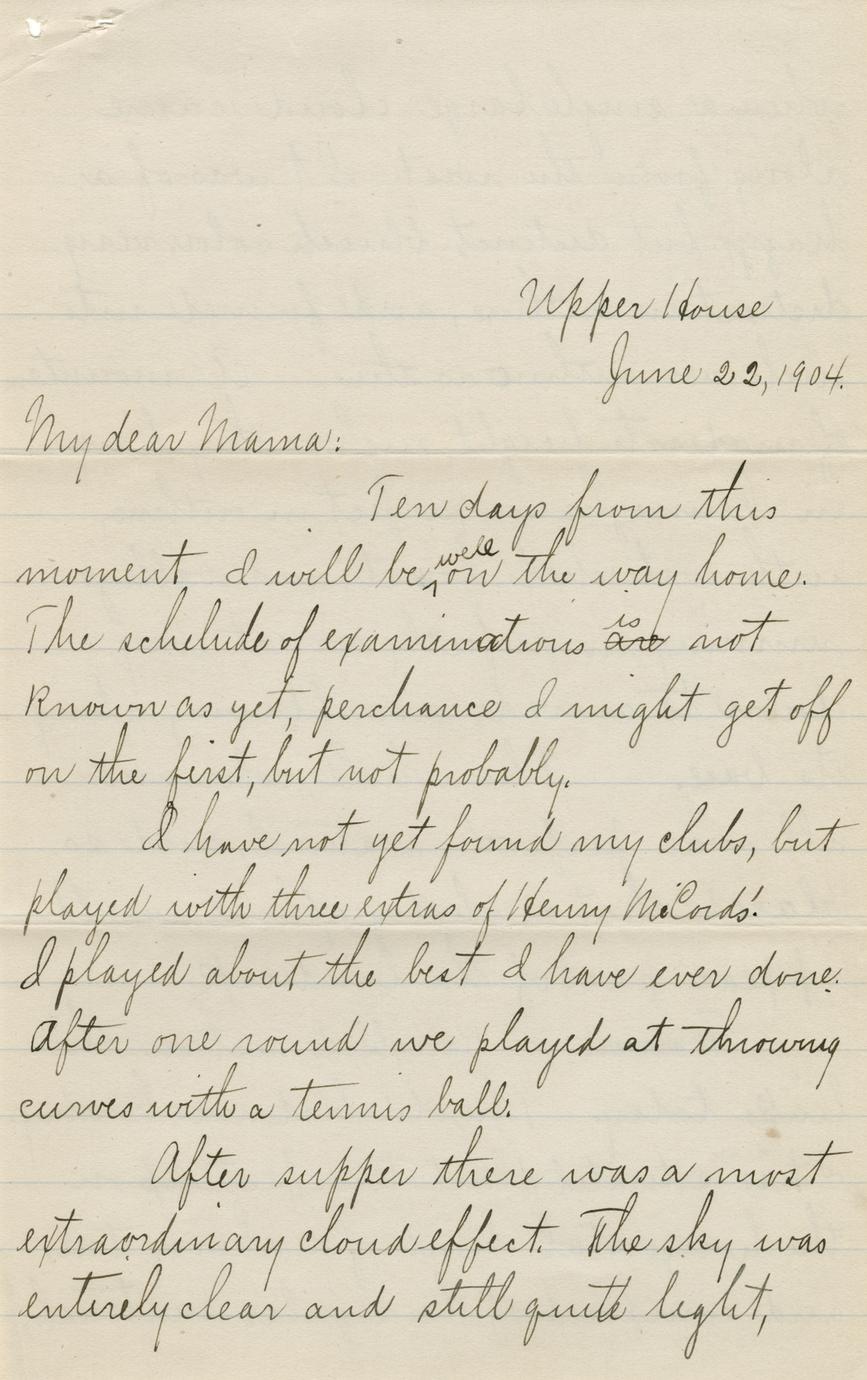 Upper House
June 22, 1904.
My dear Mama:
Ten days from this
moment I will be well on the way home.
The schelude of examinations are is not
known as yet, perchance I might get off
on the first, but not probably.
I have not yet found my clubs, but
played with three extras of Henry McCords'.
I played about the best I have ever done.
After one round we played at throwing
curves with a tennis ball.
After supper there was a most
extraordinary cloud effect. The sky was
entirely clear and still quite light,